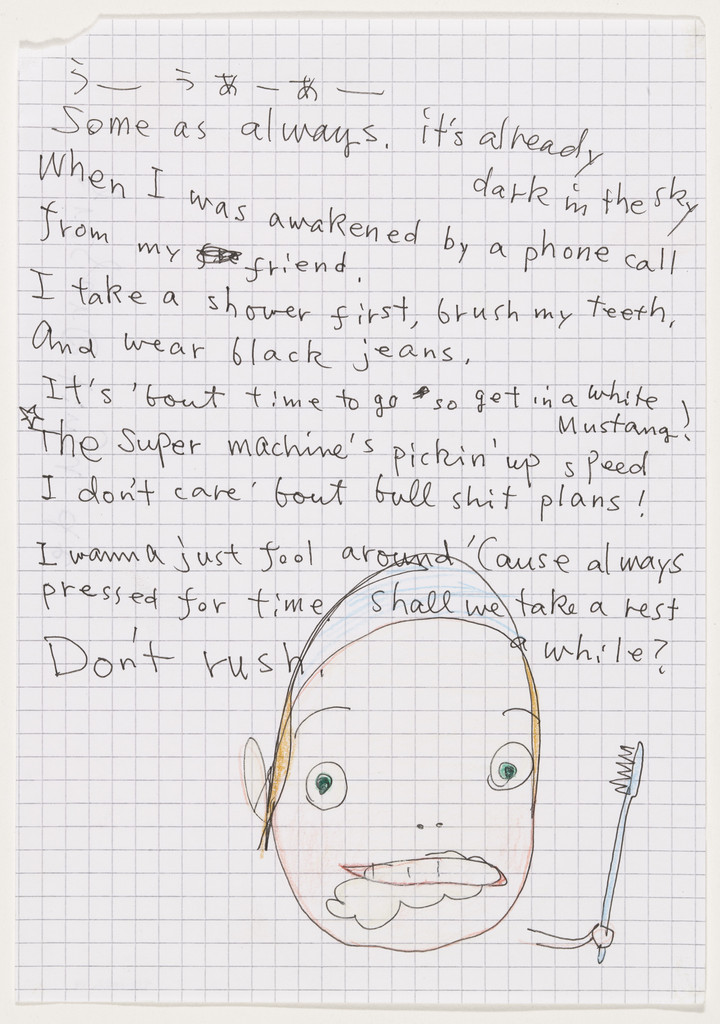 うー うあーあー
Some as always. it's already
dark in the sky
When I was awakened by a phone call
from my friend.
I take a shower first, brush my teeth,
And wear black jeans.
It's 'bout time to go so get in a white
Mustang!
☆The super machine's pickin' up speed
I don't care 'bout bull shit plans!
I wanna just fool around 'Cause always
pressed for time shall we take a rest
a while?
Don't rush!